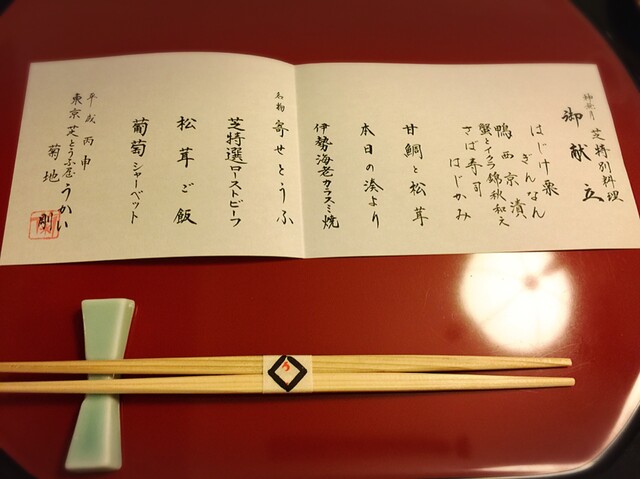 神無月
芝特別料理
御献立
はじけ栗
ぎんなん
鴨西京漬
蟹とイクラ錦秋和え
さば寿司
はじかみ
甘鯛と松茸
本日の湊より
伊勢海老カラスミ焼
名物 寄せとうふ
芝特選ローストビーフ
松茸ご飯
葡萄シャーベット
平成丙申
東京芝とうふ屋うかい
菊地 剛